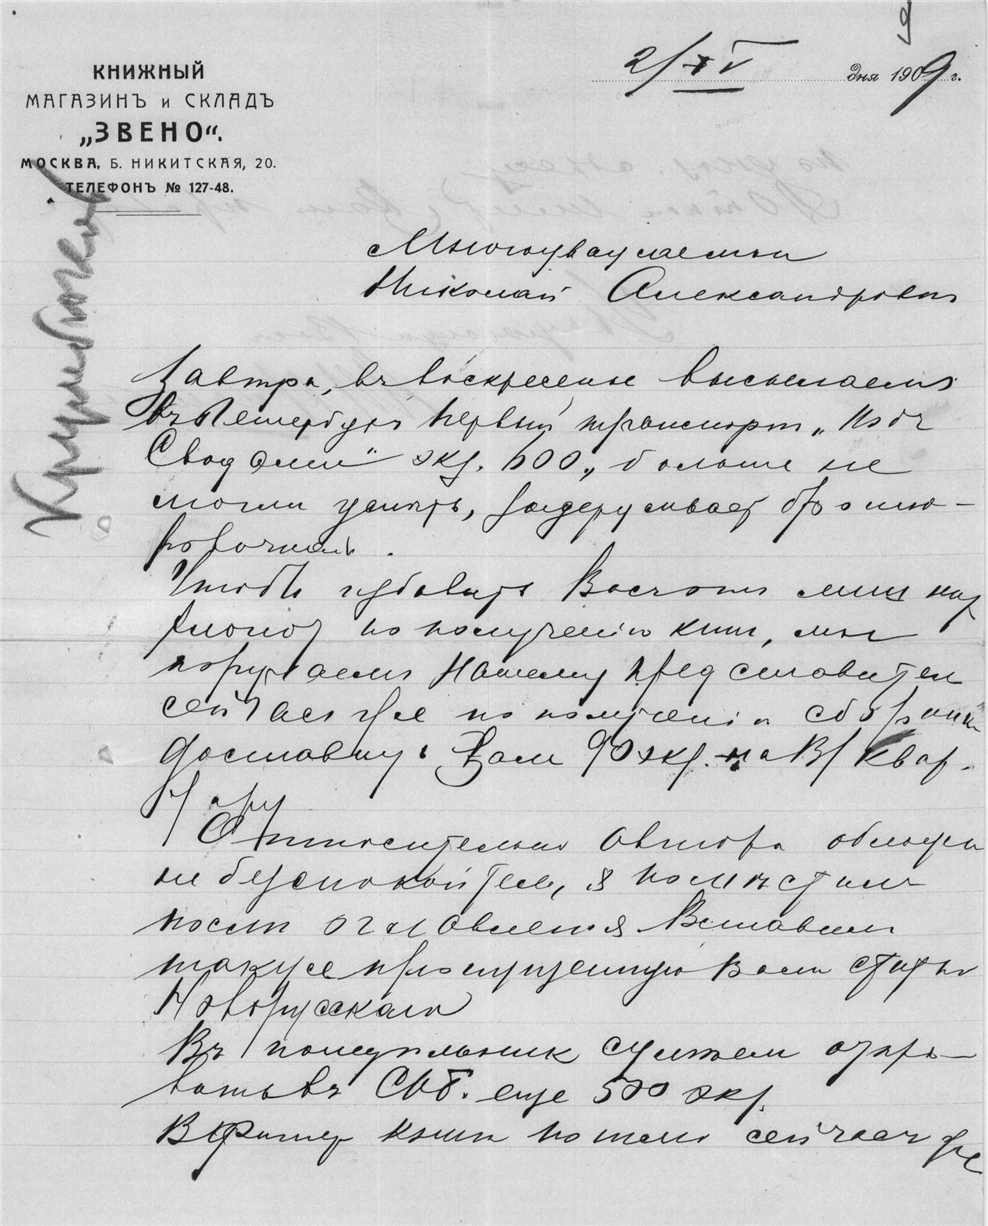 КНИЖНЫЙ
МАГАЗИНЪ и СКЛАДЪ
„ЗВЕНО“.
МОСКВА, Б. НИКИТСКАЯ, 20.
ТЕЛЕФОНЪ № 127-48.
2/ дня 1909 г.
Многоуважаемый
Николай Александровичъ
Завтра, въ воскресенье высылаемъ
въ Петербургъ первый транспортъ „Подъ
Сводами“ экз. 600, больше не
могли успѣть, задерживаетъ брошю-
ровочная.
Чтобы избавить Васъ отъ
хлопотъ по полученію книгъ, мы
поручаемъ нашему представителю
сейчасъ же по полученіи
доставить Вамъ 90 экз. на В/ квар-
тиру
Относительно автора обложки
не безпокойтесь, я помѣстилъ
послѣ оглавленія. Вставили
также пропущенную Вами статью
Новорусскаго
Въ понедѣльникъ сумѣемъ отпра-
вить въ СПб. еще 500 экз.
книги сейчасъ же